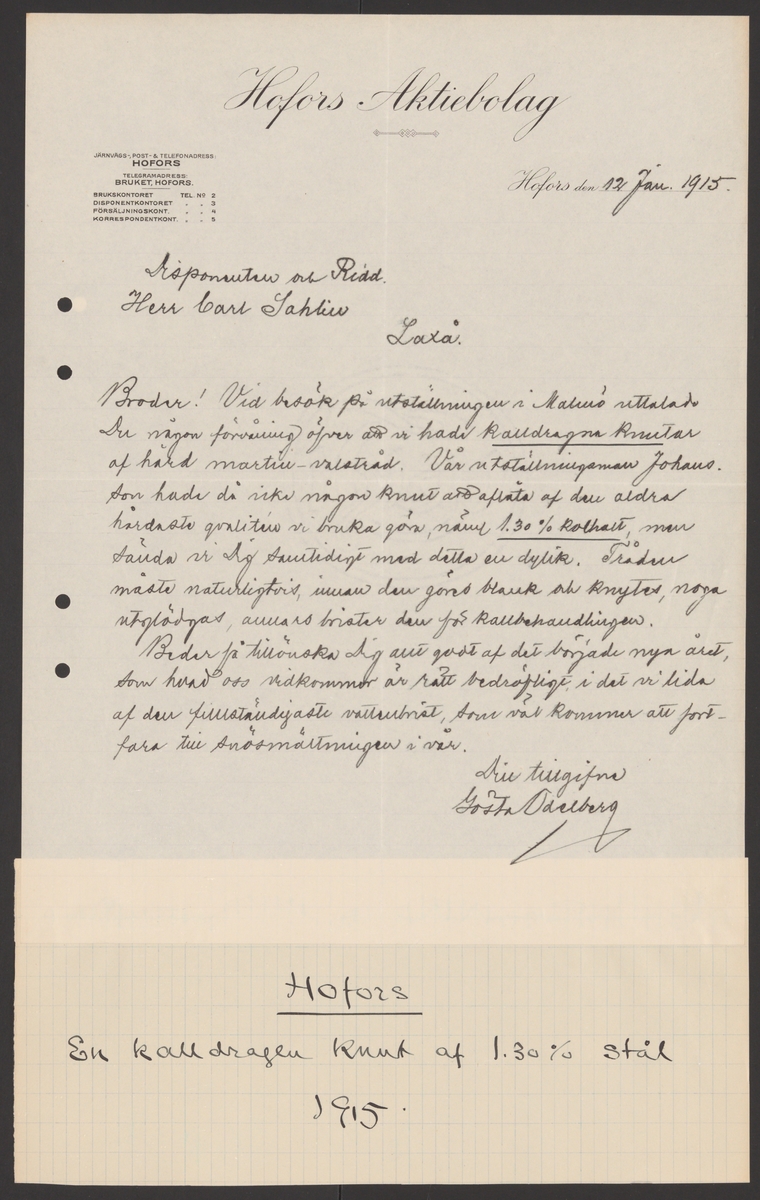 Hofors Aktiebolag
JÄRNVÄGS-, POST- & TELEFONADRESS:
HOFORS
TELEGRAMADRESS:
BRUKET, HOFORS.
BRUKSKONTORET TEL. Nº 2
DISPONENTKONTORET " " 3
FÖRSÄLJNINGSKONT. " " 4
KORRESPONDENTKONT. " " 5
Hofors den 12 Jan. 1915.
Disponenten och Ridd.
Herr Carl Sahlin
Laxå.
Broder! Vid besök på utställningen i Malmö uttalade
Du någon förvåning öfver att vi hade kalldragna knutar
af hård martin-valstråd. Vår utställningsman Johans-
son hade då icke någon knut att aflåta af den aldra
hårdaste qvalitén vi bruka göra, näml 1.30 % kolhalt, men
sända vi Dig samtidigt med detta en dylik. Tråden
måste naturligtvis, innan den göres blank och knytes, noga
utglödgas, annars brister den för kallbehandlingen.
Beder få tillönska Dig allt godt af det började nya året,
som hvad oss vidkommer är rätt bedröfligt, i det vi lida
af den fullständigaste vattenbrist, som väl kommer att fort-
fara till snösmältningen i vår.
Din tillgifne
Gösta Odelberg
Hofors
En kalldragen knut af 1.30 % stål
1915.